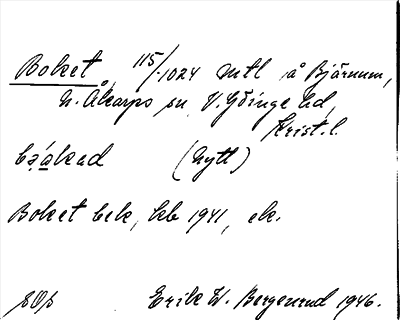 Boket, 115/1024 mtl å Bjärnum,
N. Åkarps sn, V. Göinge hd,
Krist. l.
(nytt)
Boket bek, kb 1941, ek.
Erik W. Bergenrud 1946.